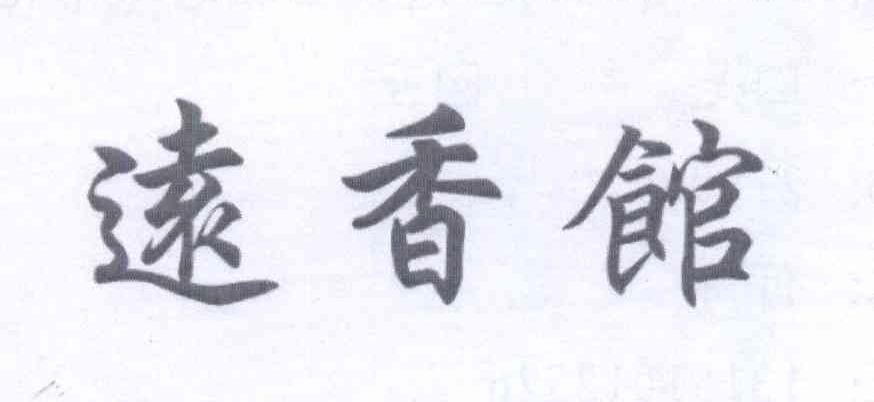 遠香館